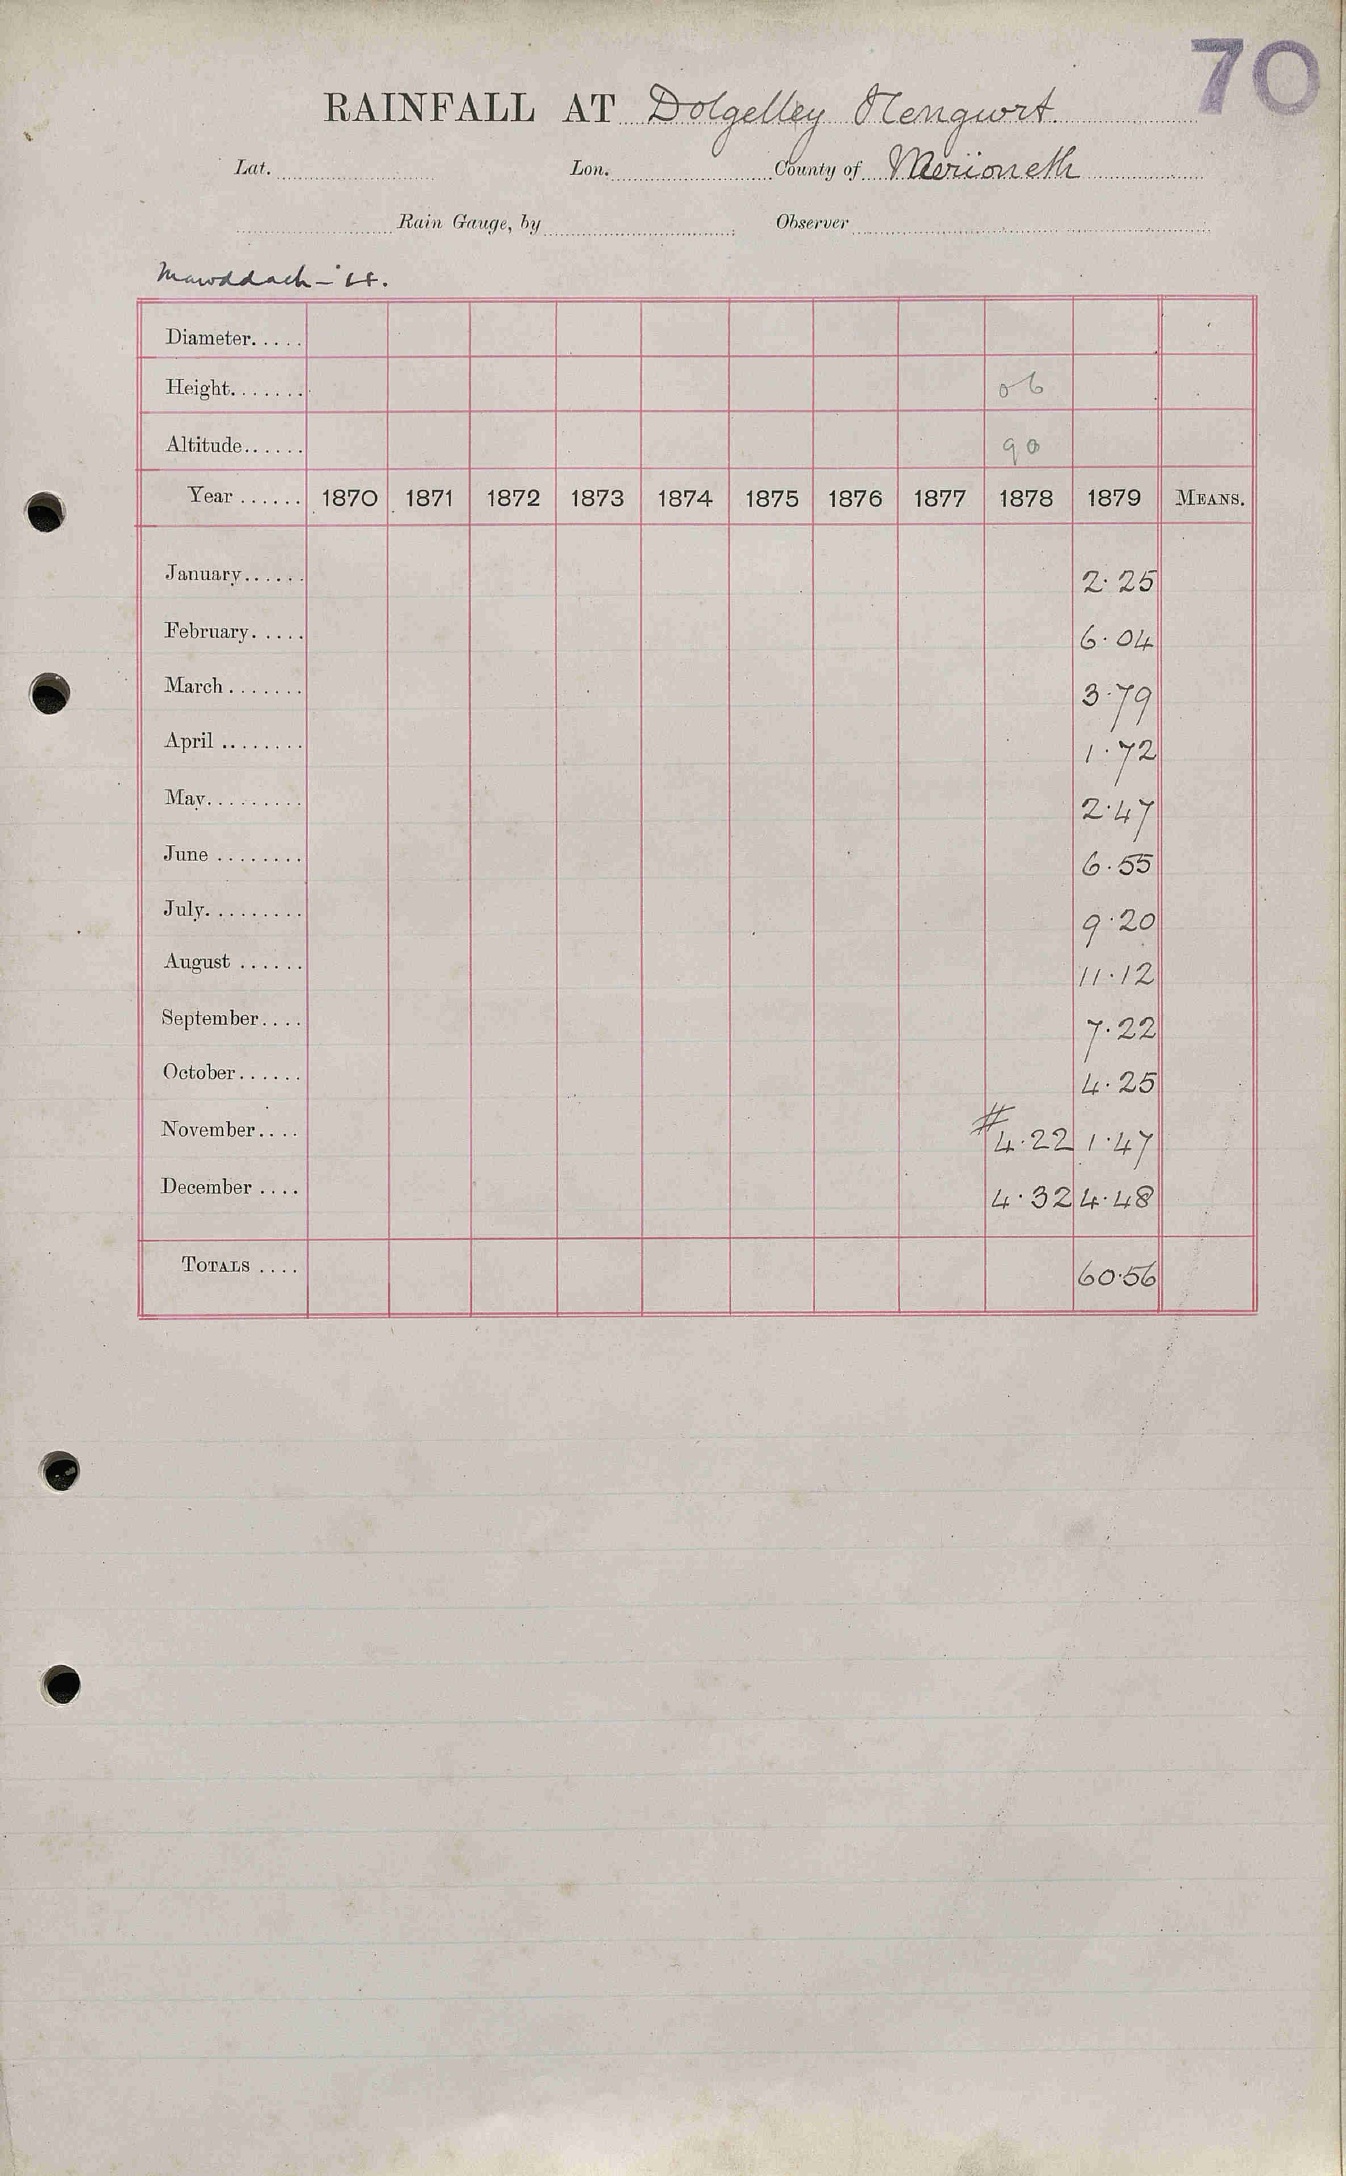 70
RAINFALL AT Dolgelley Hengwrt.
Lat. Lon. County of Merioneth
Rain Gauge, by Observer
Mawddach –
Diameter.....
Height....... 06
Altitude...... 90
Year ...... 1870 1871 1872 1873 1874 1875 1876 1877 1878 1879 MEANS.
January...... 2.25
February..... 6.04
March ....... 3.79
April ........ 1.72
May......... 2.47
June ........ 6.55
July......... 9.20
August ...... 11.12
September.... 7.22
October...... 4.25
November.... # 4.22 1.47
December .... 4.32 4.48
TOTALS .... 60.56